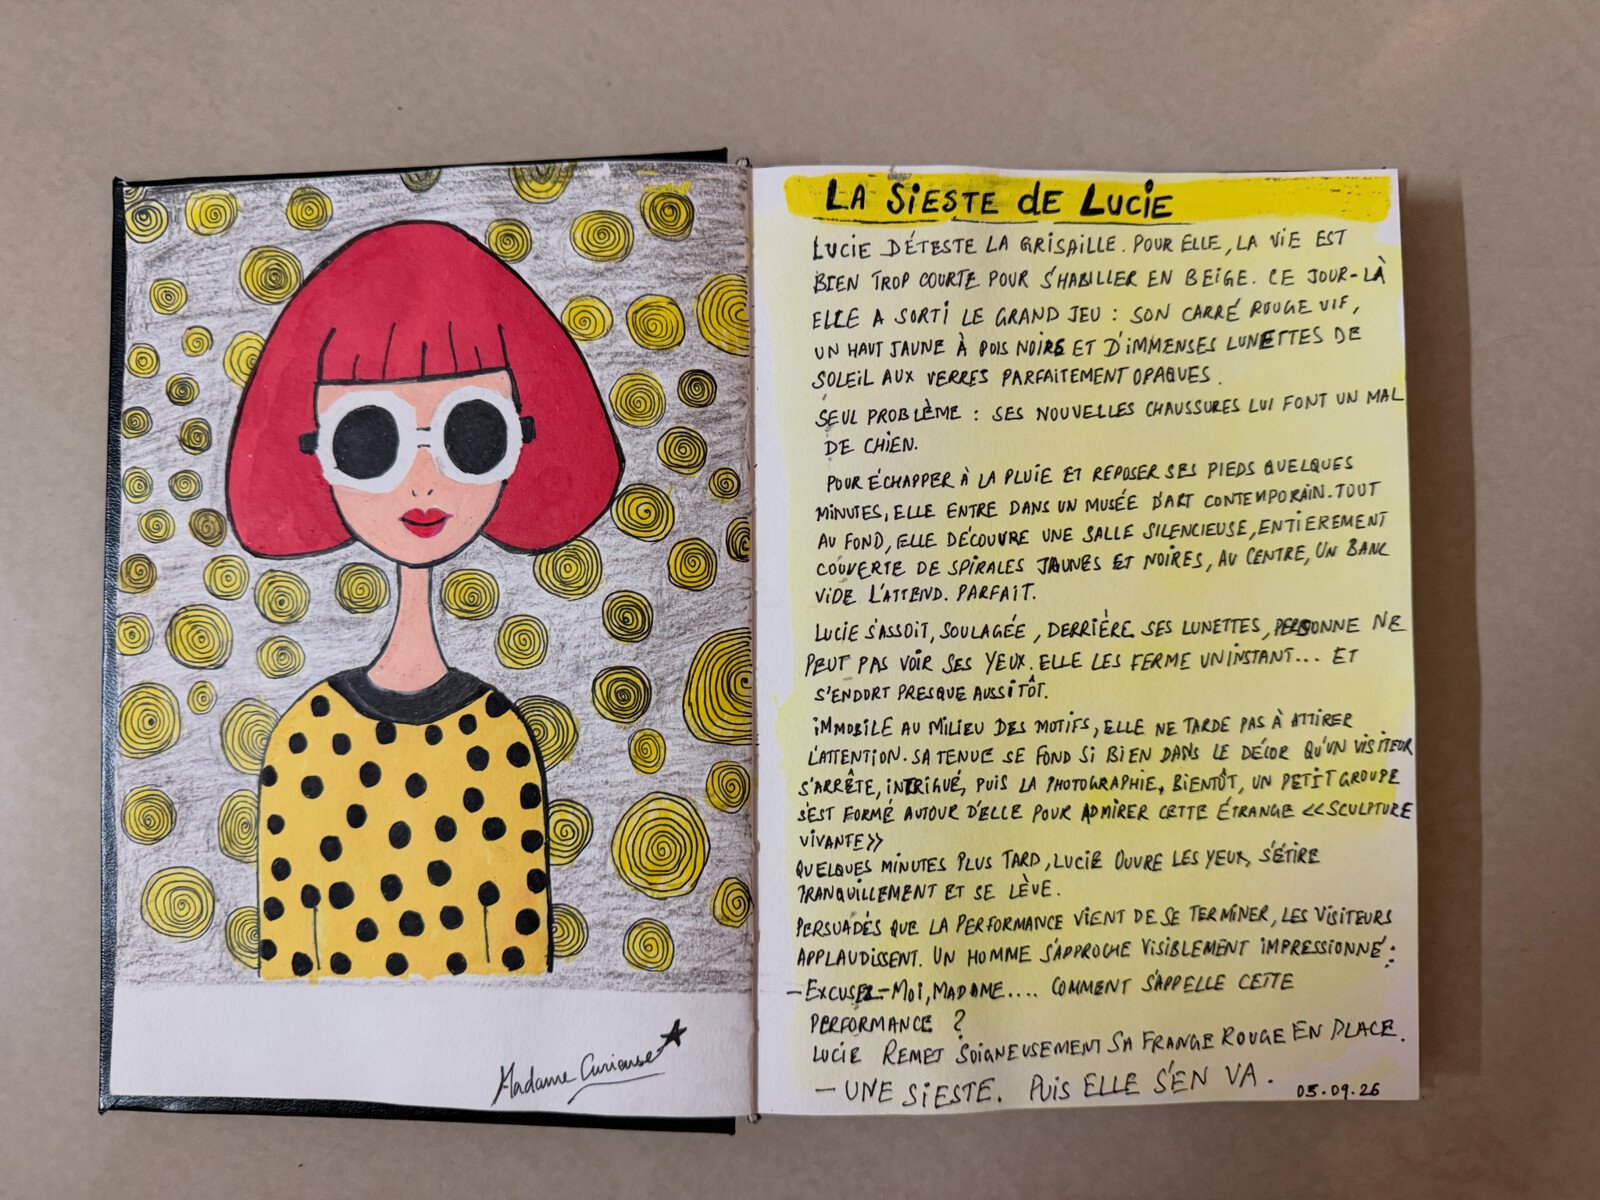 Madame Curieuse
LA SiESTE dE LUCiE
LUCIE DÉTESTE LA GRISAILLE. POUR ELLE, LA VIE EST
BIEN TROP COURTE POUR S'HABILLER EN BEIGE. CE JOUR-LÀ
ELLE A SORTI LE GRAND JEU : SON CARRÉ ROUGE VIF,
UN HAUT JAUNE À POIS NOIRS ET D'IMMENSES LUNETTES DE
SOLEIL AUX VERRES PARFAITEMENT OPAQUES.
SEUL PROBLÈME : SES NOUVELLES CHAUSSURES LUI FONT UN MAL
DE CHIEN.
POUR ÉCHAPPER À LA PLUIE ET REPOSER SES PIEDS QUELQUES
MINUTES, ELLE ENTRE DANS UN MUSÉE D'ART CONTEMPORAIN. TOUT
AU FOND, ELLE DÉCOUVRE UNE SALLE SILENCIEUSE, ENTIEREMENT
COUVERTE DE SPIRALES JAUNES ET NOIRES, AU CENTRE, UN BANC
VIDE L'ATTEND. PARFAIT.
LUCIE S'ASSOIT, SOULAGÉE, DERRIÈRE SES LUNETTES, PERSONNE NE
PEUT PAS VOIR SES YEUX. ELLE LES FERME UN INSTANT... ET
S'ENDORT PRESQUE AUSSITÔT.
IMMOBILE AU MILIEU DES MOTIFS, ELLE NE TARDE PAS À ATTIRER
L'ATTENTION. SA TENUE SE FOND SI BIEN DANS LE DÉCOR QU'UN VISITEUR
S'ARRÊTE, INTRIGUÉ, PUIS LA PHOTOGRAPHIE, BIENTÔT, UN PETIT GROUPE
S'EST FORMÉ AUTOUR D'ELLE POUR ADMIRER CETTE ÉTRANGE <<SCULPTURE
VIVANTE>>
QUELQUES MINUTES PLUS TARD, LUCIE OUVRE LES YEUX, S'ÉTIRE
TRANQUILLEMENT ET SE LÈVE.
PERSUADÉS QUE LA PERFORMANCE VIENT DE SE TERMINER, LES VISITEURS
APPLAUDISSENT. UN HOMME S'APPROCHE VISIBLEMENT IMPRESSIONNÉ :
– EXCUSEZ-MOI, MADAME.... COMMENT S'APPELLE CETTE
PERFORMANCE ?
LUCIE REMET SOIGNEUSEMENT SA FRANGE ROUGE EN PLACE.
– UNE SIESTE. PUIS ELLE S'EN VA.
05.09.26